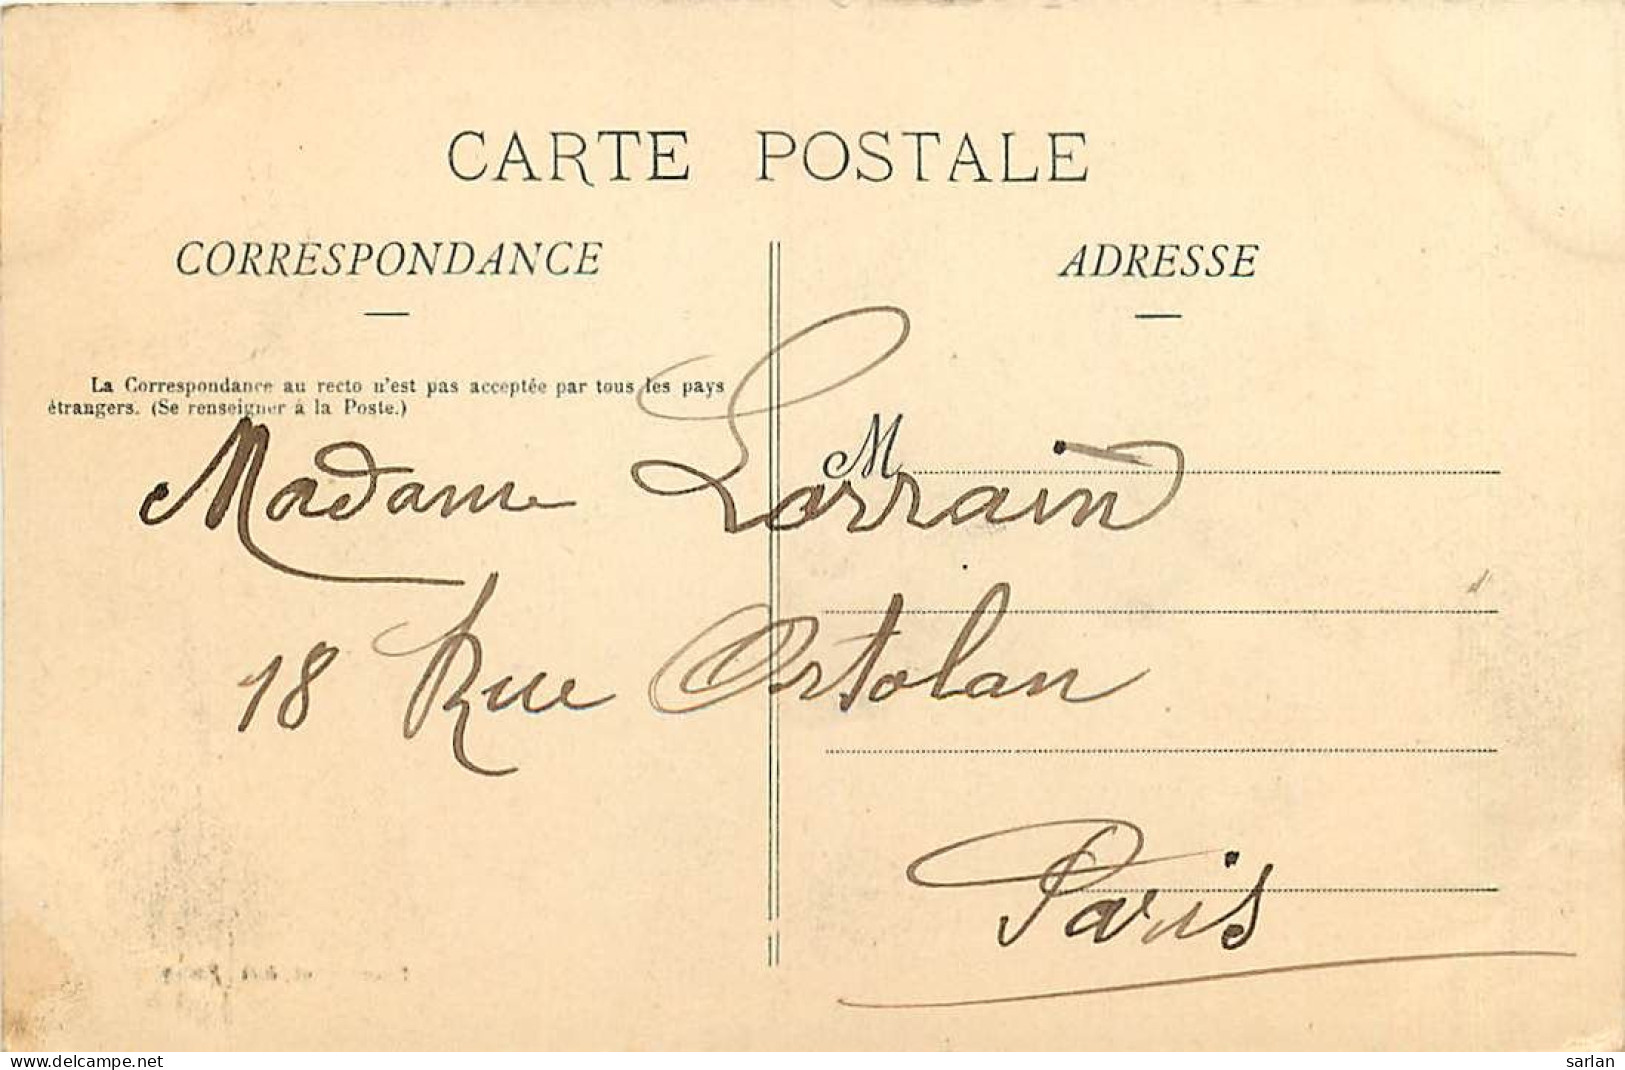 CARTE POSTALE
CORRESPONDANCE
ADRESSE
La Correspondance au recto n'est pas acceptée par tous les pays
étrangers. (Se renseigner à la Poste.)
M
Madame Lorrain
18 Rue Ortolan
Paris
www.delcampe.net
sarlan